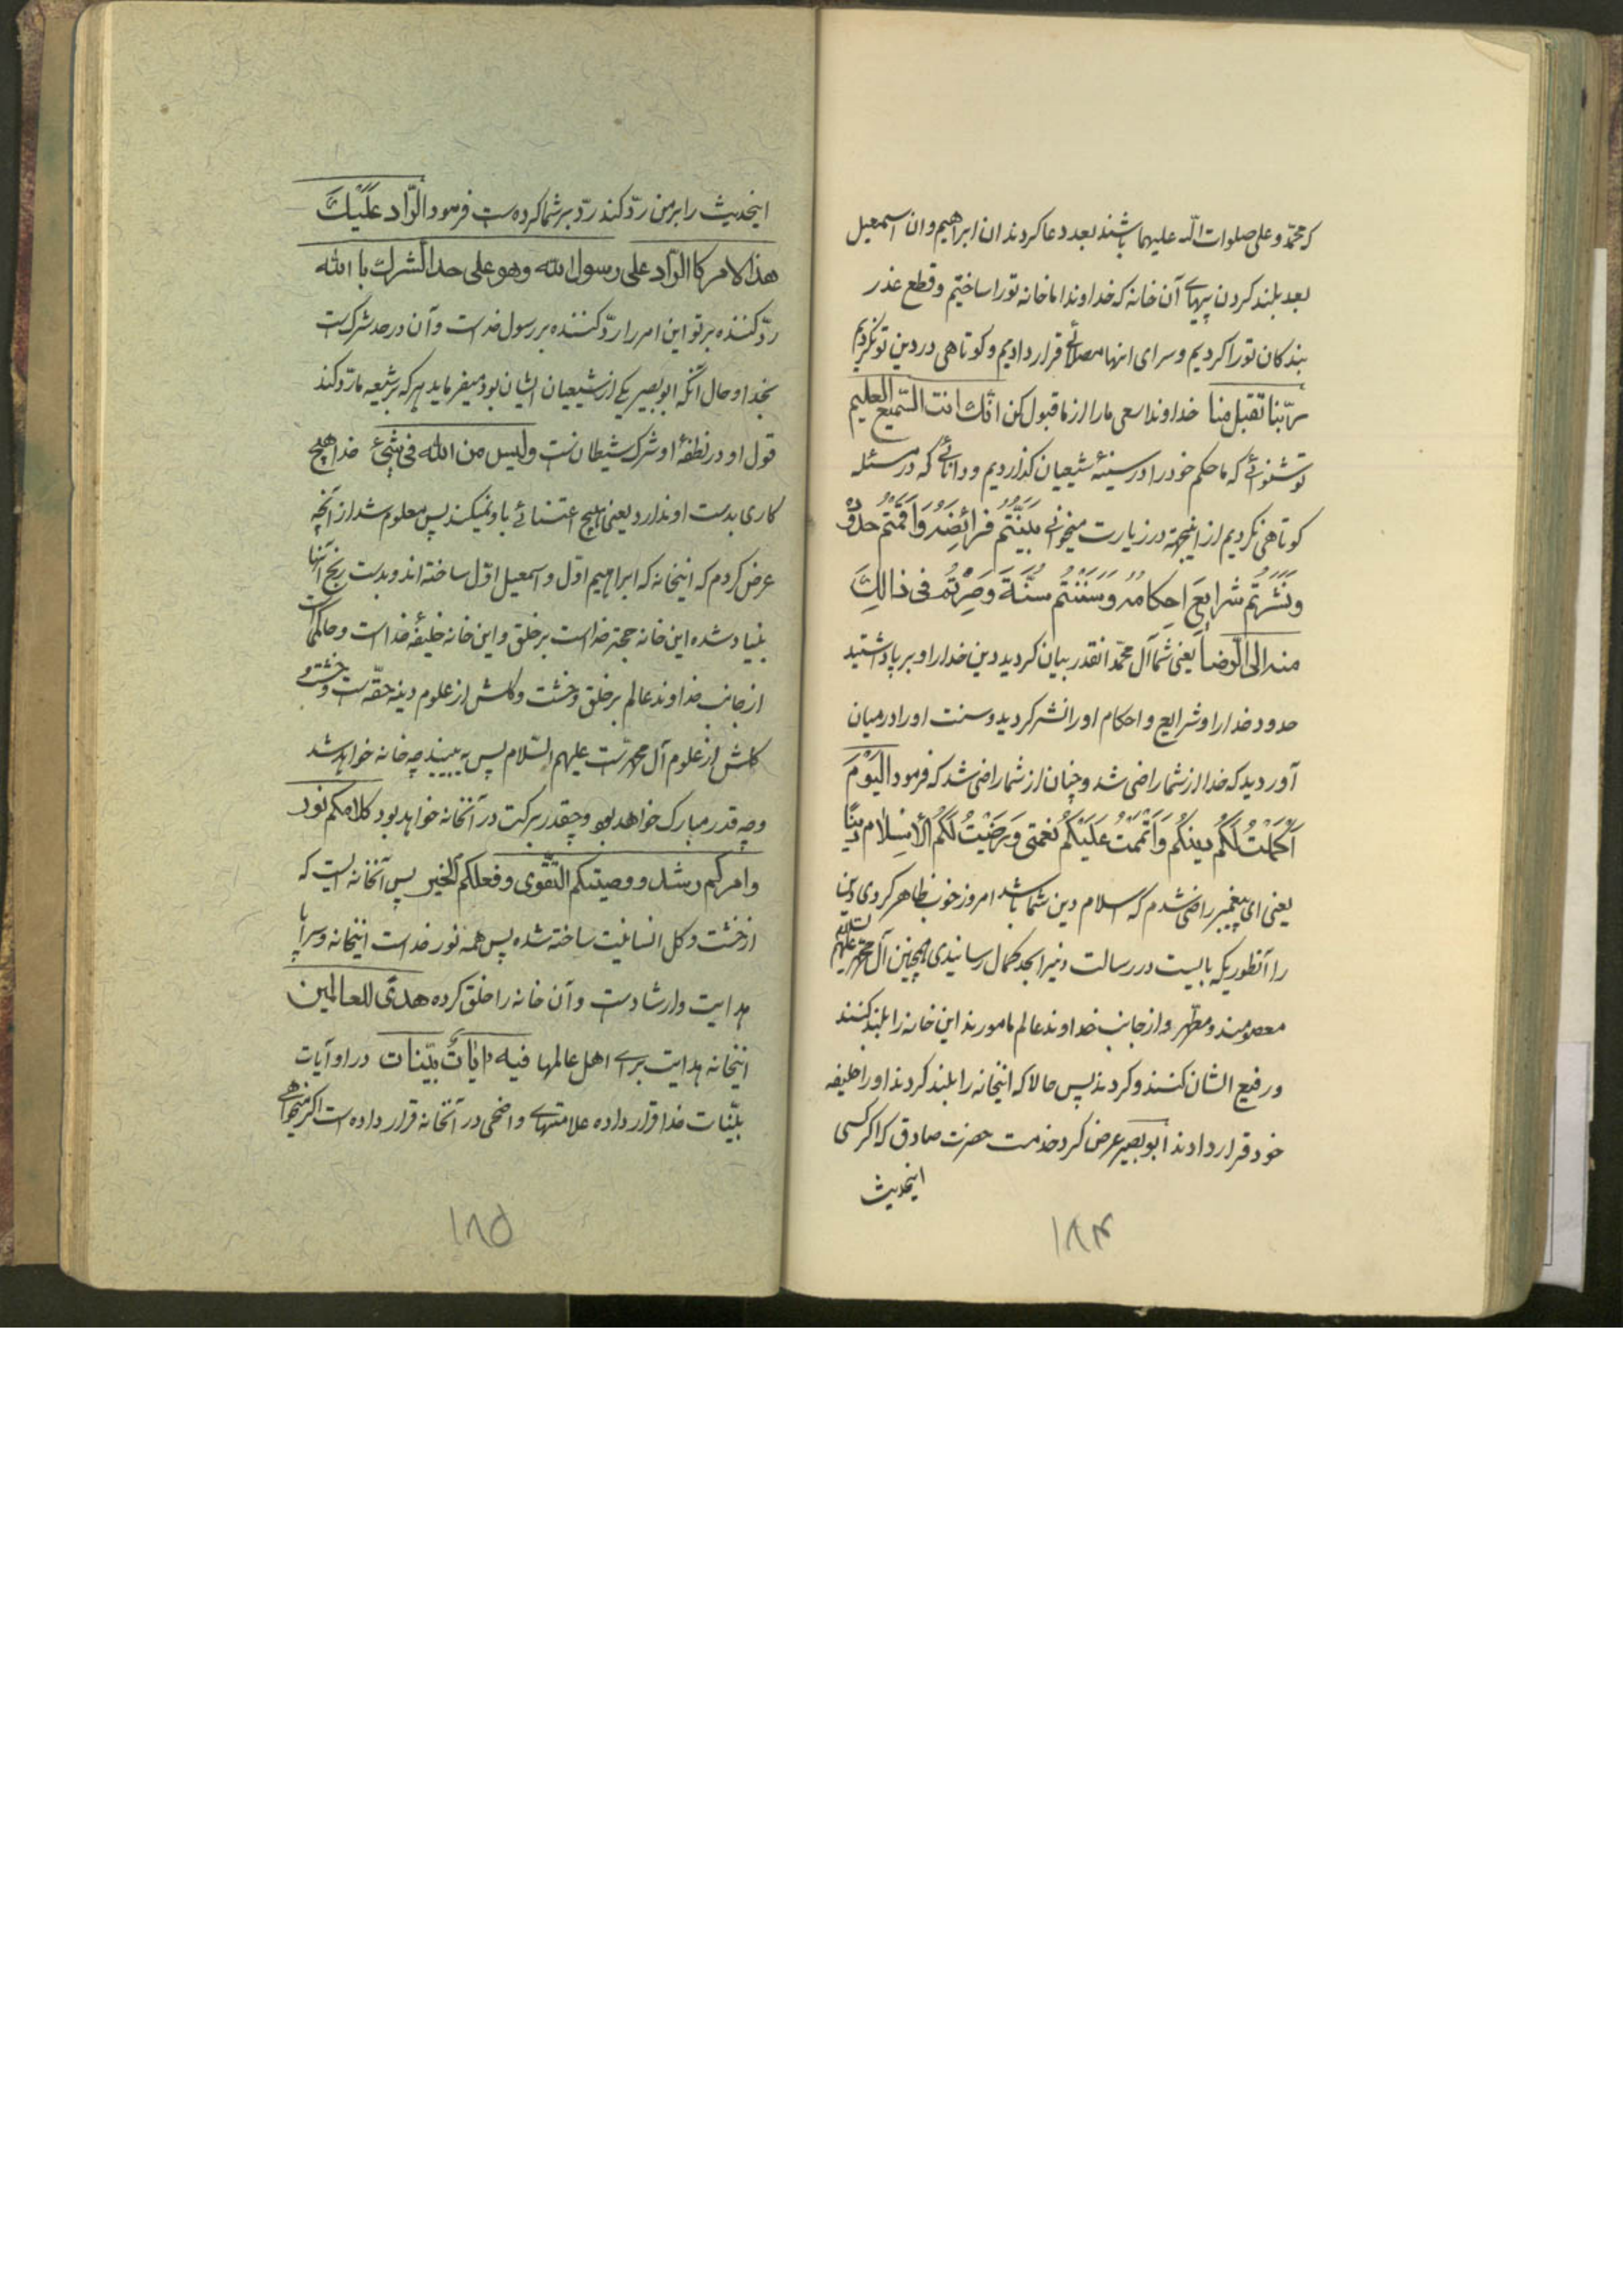 که محمّد و علی صلوات اللّه علیهما باشند بعد دعا کردند ان ابراهیم و ان اسمعیل
بعد بلند کردن پیهای آن خانه که خداوندا ما خانه تو را ساختیم و قطع عذر
بندکان تو را کردیم و سرای انها مصلائی قرار دادیم و کوتاهی در دین تو نکردیم
ربّنا تقبل منا خداوندا سعی ما را از ما قبول کن انّک انت السّمیع العلیم
تو شنوائی که ما حکم خود را در سینهٔ شیعیان کذاردیم و دانائی که در مسئله
کوتاهی نکردیم از اینجهة در زیارت میخوانی بَیَّنْتُم فرائِضَهُ وَاَقَمْتُم حُدُودَهُ
وَنَشَرْتُم شرایِعَ اَحکامه وَسَنَنْتُم سُنَّتَهُ وَصِرْتُم فی ذالِکَ
منه الی الرّضا یعنی شما آل محمّد انقدر بیان کردید دین خدا را و برپا داشتید
حدود خدا را و شرایع و احکام او را نشر کردید و سنت او را در میان
آوردید که خدا از شما راضی شد و چنان از شما راضی شد که فرمود الیَوْمَ
اَکمَلتُ لَکُم دینکُم وَاَتْمَمتُ عَلَیْکُم نِعْمَتی وَرَضیْتُ لَکُمُ الْاِسْلامَ دیناً
یعنی ای پیغمبر راضی شدم که اسلام دین شما باشد امروز خوب ظاهر کردی دین
را آنطوریکه بایست در رسالت و نیز ابحد کمال رسانیدی همچنین آل محمّد علیهم السلام
معصومند و مطهّر و از جانب خداوند عالم مامورند این خانه را بلند کنند
و رفیع الشان کنند و کردند پس حالا که اینخانه را بلند کردند او را خلیفه
خود قرار دادند ابوبصیر عرض کرد خدمت حضرت صادق که اکر کسی
اینحدیث
۱۸۴
اینحدیث را بر من ردّ کند ردّ بر شما کرده است فرمود الرّاد عَلَیْکَ
هذا الامر کالرّاد علی رسول الله وهو علی حد الشرک با الله
ردّ کننده بر تو این امر را ردّ کننده بر رسول خداست و آن در حد شرک است
بخدا و حال آنکه ابوبصیر یکی از شیعیان ایشان بود میفرماید هر که بر شیعه ما ردّ کند
قول او در نطفهٔ او شرک شیطان است ولیس من الله فی شیئ خدا هیچ
کاری بدست او ندارد یعنی هیچ اعتنائی باو نمیکند پس معلوم شد از آنچه
عرض کردم که اینخانه که ابراهیم اوّل و اسمعیل اوّل ساخته اند و بدست رنج آنها
بنیاد شده این خانه حجة خداست بر خلق و این خانه خلیفهٔ خداست و حاکم است
از جانب خداوند عالم بر خلق و خشت و کلش از علوم دینه حقّه است و خشت و
کلش از علوم آل محمّد است علیهم السّلام پس ببینید چه خانه خواهد شد
و چه قدر مبارک خواهد بود و چقدر برکت در آنخانه خواهد بود کلامکم نور
وامرکم رشد و وصیتکم التّقوی وفعلکم الخیر پس آنخانه ایست که
از خشت و کل انسانیت ساخته شده پس همه نور خداست اینخانه و سراپا
هدایت و ارشاد است و آن خانه را خلق کرده هدیً للعالمین
اینخانه هدایت برای اهل عالمها فیه ایاتٌ بیّنات در او آیات
بیّنات خدا قرار داده علامتهای واضحی در آنخانه قرار داده است اکر میخواهی
۱۸۵